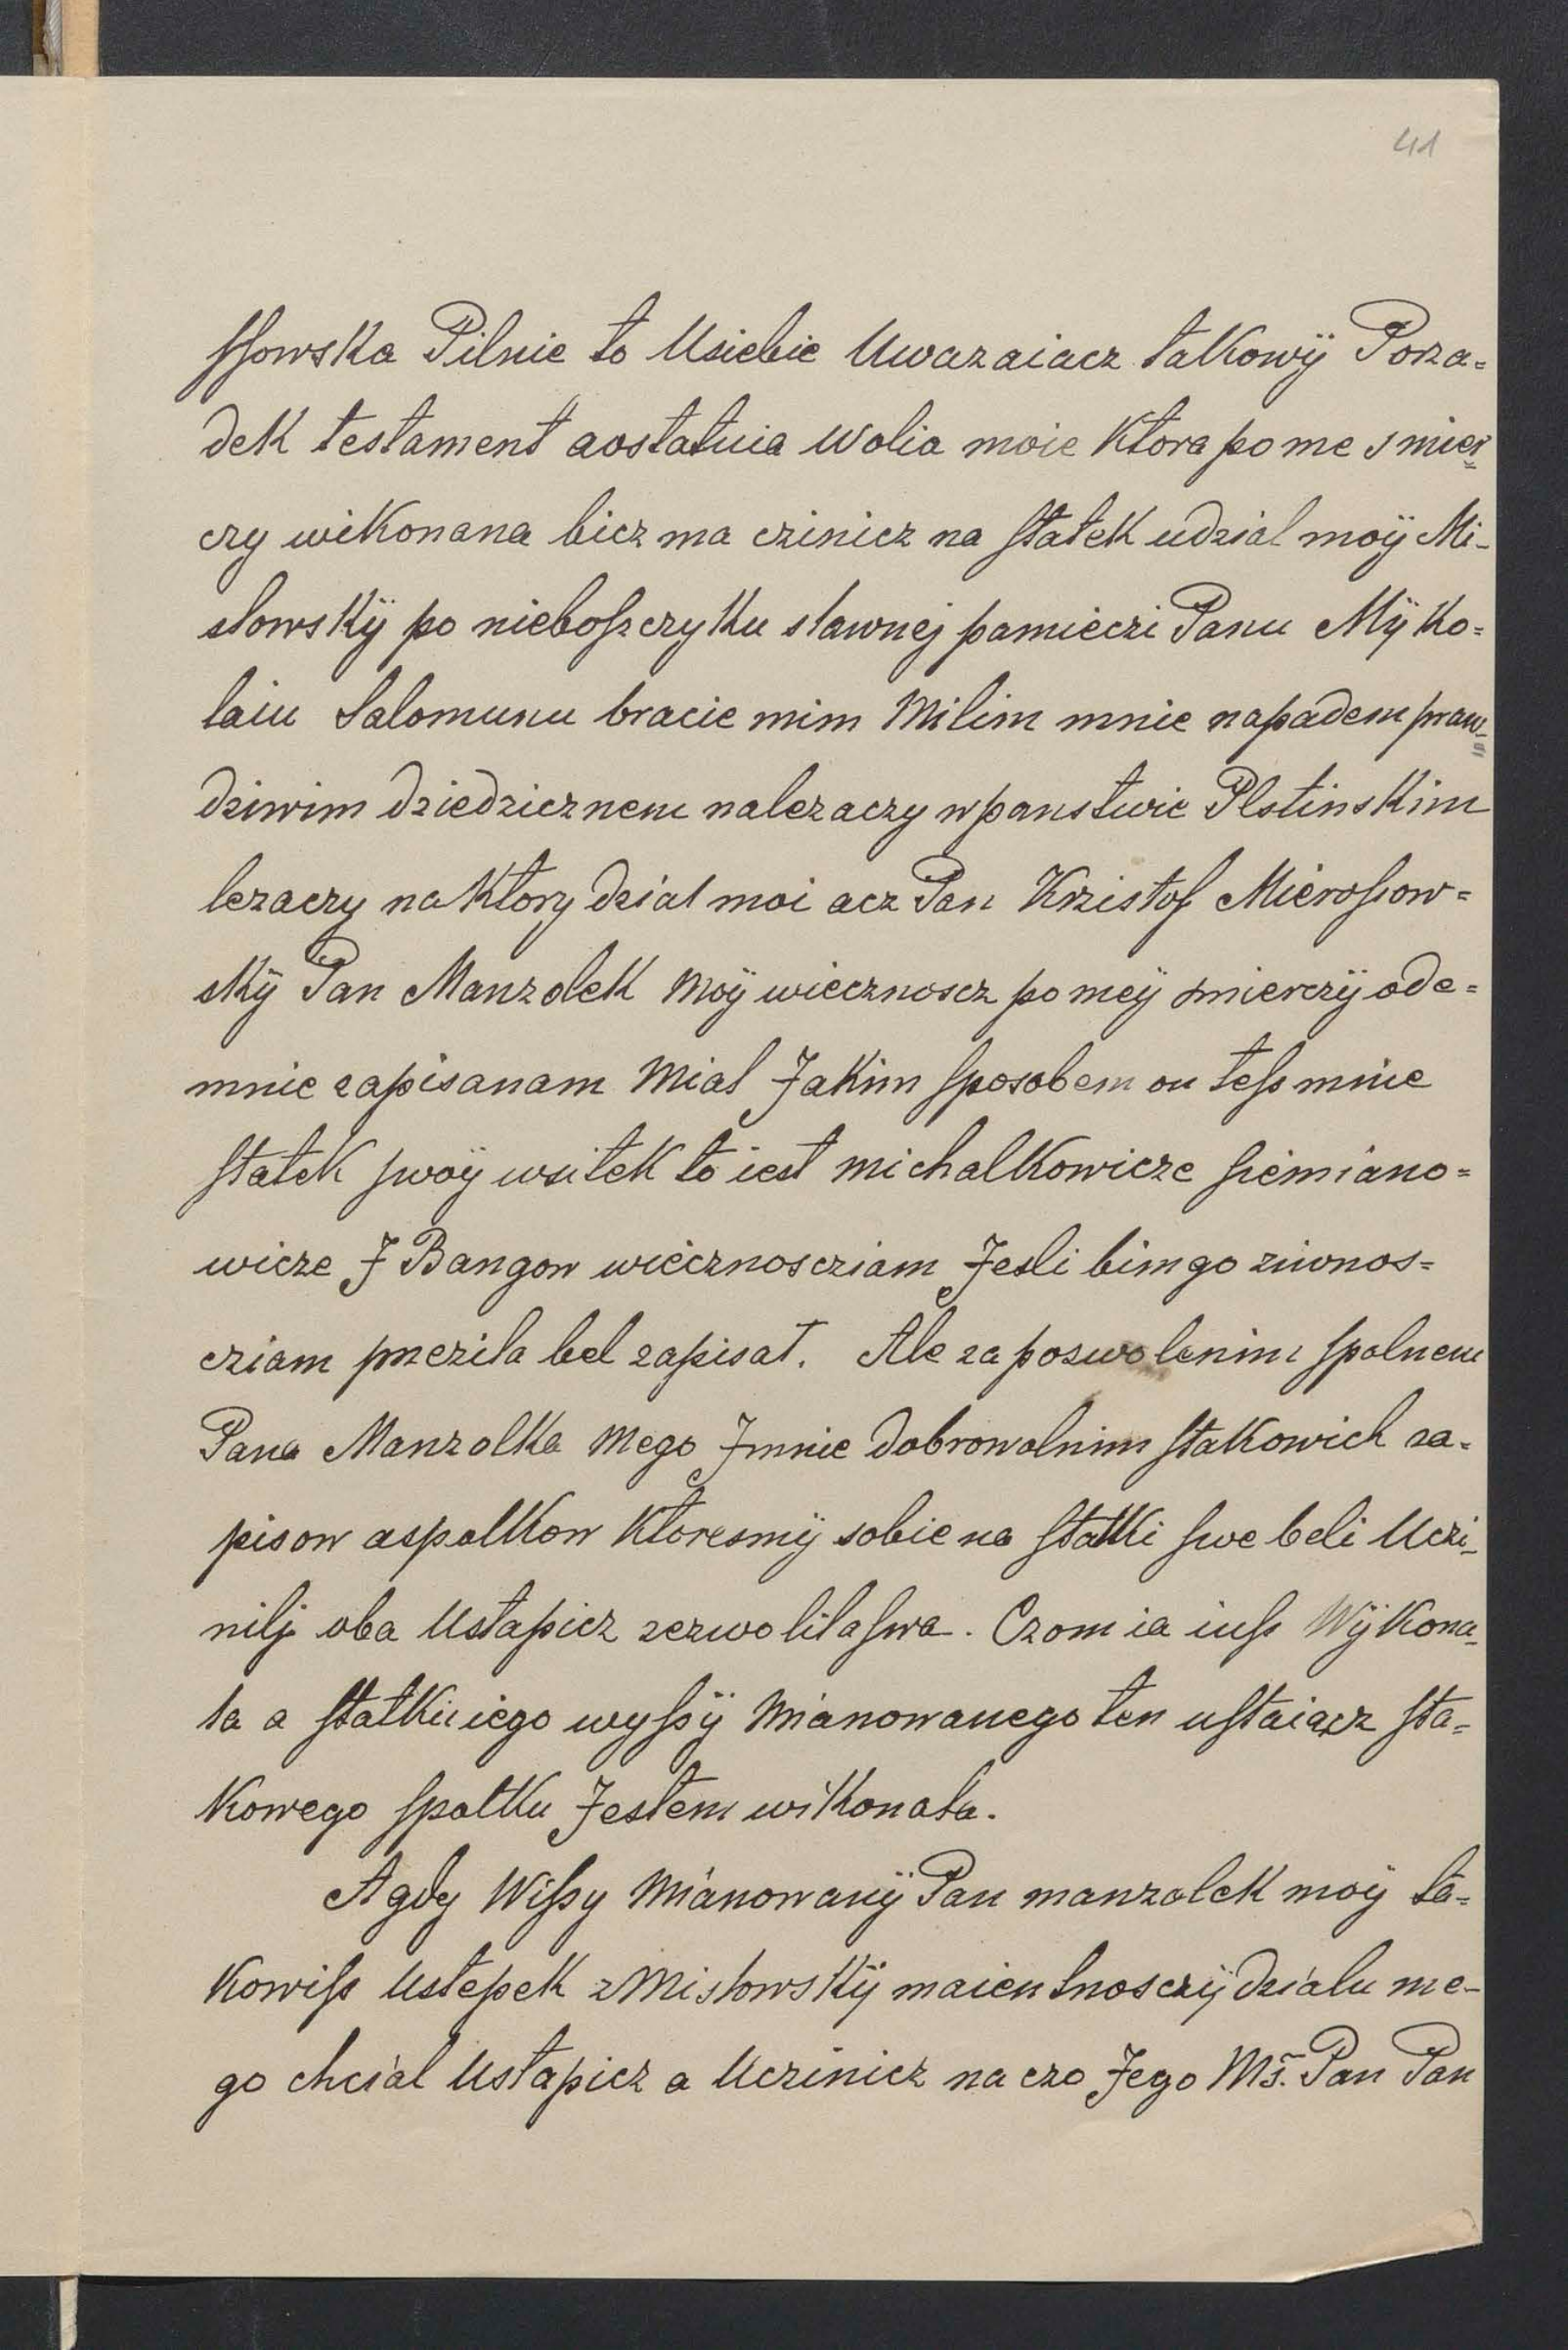 41
ſſowska Pilnie to Usiebie Uwazaiacz takowÿ Porza=
dek testament aostatnia Wolia moie Ktora po me smier=
czy wikonana bicz ma czinicz na ſtatek udzial moÿ Mi-
slowskÿ po nieboſzczyku slawnej pamieczi Panu Mÿko=
laiu Salomunu bracie mim Milim mnie napadem praw=
dziwim dziedzicznem nalezaczy wpanstwie Plstinskim
lezaczy na Ktory dzial moi acz Pan Krzistof Mieroſsow=
skÿ Pan Manzolek Moÿ wiecznoscz po meÿ smierczÿ ode=
mnie zapisanam Mial Jakim ſposobem on teſs mnie
ſtatek ſwoÿ wsitek to iest michalkowicze ſiemiano=
wicze J Bangow wiecznosciam Jesli bimgo ziwnos=
cziam przezila bel zapisat. Ale za pozwolenim ſpolnem
Pana Manzolka Mego Jmnie dobrowolnim ſtakowich za=
pisow aspolkow Ktoresmÿ sobie na ſtatki ſwe beli Uczi-
nilj oba Ustapicz zezwolilaſwa. Czom ia iuſs WÿKona-
la a ſtatku iego wyſsÿ Mianowanego ten uſtaiacz ſta=
Kowego ſpolku Jestem wikonala.
A gdy Wiſsy Mianowanÿ Pan manzolek moÿ ta=
Kowiſs Ustepek z MislowsKÿ maientnosczÿ dzialu me-
go chcial Ustapicz a Uczinicz na czo Jego Ms̃. Pan Pan